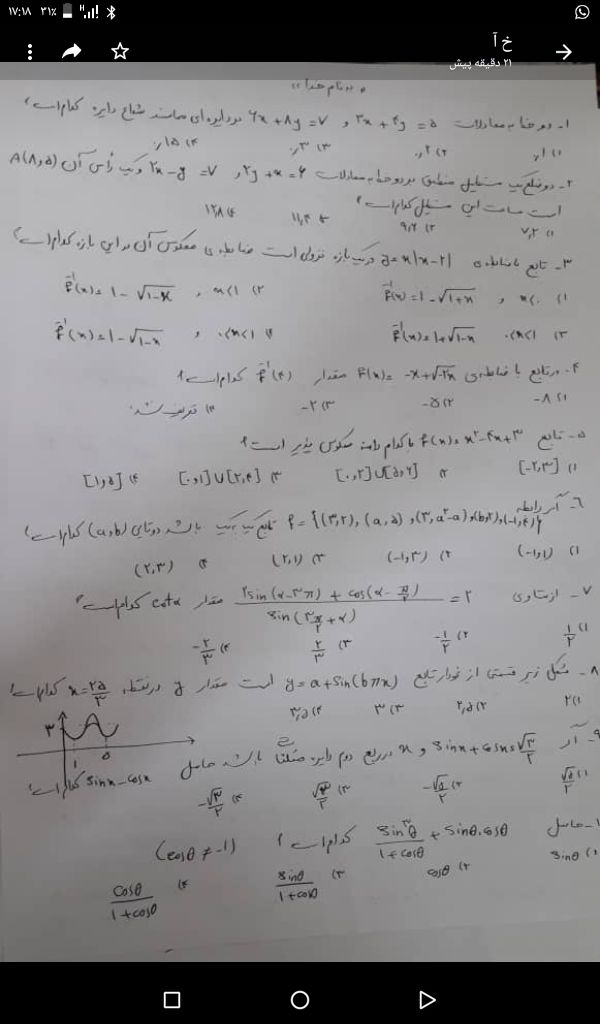 ۱۷:۱۸ ۳۱٪
خ آ
۲۱ دقیقه پیش
به نام خدا
۱- دو خط به معادلات ۳x + ۴y = ۵ و ۶x + ۸y = ۷ بر دایره ای مماسند شعاع دایره کدام است؟
۱) ۰٫۱ ۲) ۰٫۲ ۳) ۰٫۳ ۴) ۰٫۱۵
۲- دو ضلع یک مستطیل منطبق بر دو خط به معادلات ۲y + x = ۶ و ۲x - y = ۷ و یک رأس آن A(۸,۵)
است مساحت این مستطیل کدام است؟
۱) ۷٫۲ ۲) ۹٫۶ ۳) ۱۱٫۴ ۴) ۱۲٫۸
۳- تابع با ضابطه ی y = x|x-۲| در یک بازه نزولی است ضابطه ی معکوس آن در این بازه کدام است؟
۱) x<۰ و f⁻¹(x) = ۱ - √(۱+x) ۲) x<۱ و f⁻¹(x) = ۱ - √(۱-x)
۳) ۰<x<۱ و f⁻¹(x) = ۱ + √(۱-x) ۴) ۰<x<۱ و f⁻¹(x) = ۱ - √(۱-x)
۴- در تابع با ضابطه ی f(x) = -x + √(-۲x) مقدار f⁻¹(۴) کدام است؟
۱) -۸ ۲) -۵ ۳) -۲ ۴) تعریف نشده
۵- تابع f(x) = x² - ۴x + ۳ با کدام دامنه معکوس پذیر است؟
۱) [-۲,۳] ۲) [۰,۲]∪[۵,۶] ۳) [۰,۱]∪[۲,۴] ۴) [۱,۵]
۶- اگر رابطه f = {(۳,۲), (a,۵), (۳,a²-a), (b,۲), (-۱,۴)} تابع یک به یک باشد دوتایی (a,b) کدام است؟
۱) (-۱,۱) ۲) (-۱,۳) ۳) (۲,۱) ۴) (۲,۳)
۷- از تساوی (۲sin(α-۳π) + cos(α-π/۲)) / sin(۳π/۲ + α) = ۲ مقدار cotα کدام است؟
۱) ۱/۲ ۲) -۱/۲ ۳) ۲/۳ ۴) -۲/۳
۸- شکل زیر قسمتی از نمودار تابع y = a + sin(bπx) است مقدار y در نقطه x = ۲۵/۳ کدام است؟
۱) ۲ ۲) ۲٫۵ ۳) ۳ ۴) ۳٫۵
۳ ۱ ۵
۹- اگر sinx + cosx = √۳/۲ و x در ربع دوم دایره مثلثاتی باشد حاصل
sinx - cosx کدام است؟
۱) √۵/۲ ۲) -√۵/۲ ۳) √۳/۲ ۴) -√۳/۲
۱- حاصل sin³θ/(۱+cosθ) + sinθ.cosθ کدام است؟ (cosθ ≠ -۱)
۱) sinθ ۲) cosθ ۳) sinθ/(۱+cosθ) ۴) cosθ/(۱+cosθ)